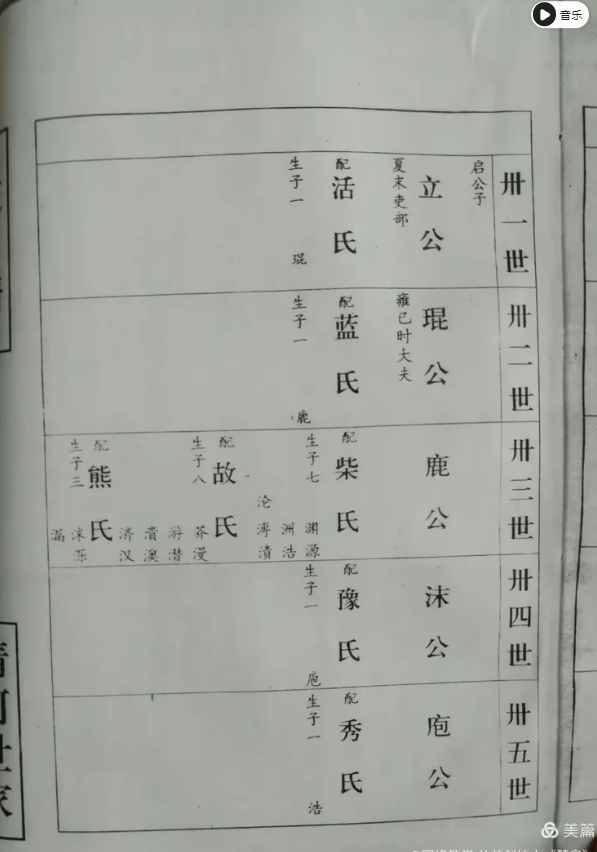 音乐
卅一世
启公子
立公
夏末吏部
配活氏
生子一 琨
卅二世
琨公
雍己时大夫
配蓝氏
生子一 鹿
卅三世
鹿公
配柴氏
生子七
渊源
洲浩
沦漙渍
配故氏
生子八
漭漫
游潜
潰澳
济汉
配熊氏
生子三
沫泺
漏
卅四世
沫公
配豫氏
生子一 庖
卅五世
庖公
配秀氏
生子一 浩
清河世家
美篇